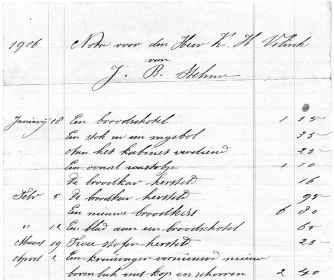 1906 Nota voor den Heer K. H. Velink
van
J. B.
Januarij 18 Een broodschotel 1 15
Een stok in een ragebol 35
Aan het kabinet verdiend 25
Een ovaal 1 10
De broodkar hersteld 16
Febr 5 De broodkar hersteld 95
Een nieuwe broodkist 6 80
" 12 Een blad aan een broodschotel 60
Maart 19 Twee stofen hersteld 25
April 2 Een kruiwagen vernieuwd nieuw
bovenbak met kop en schorren 2 40